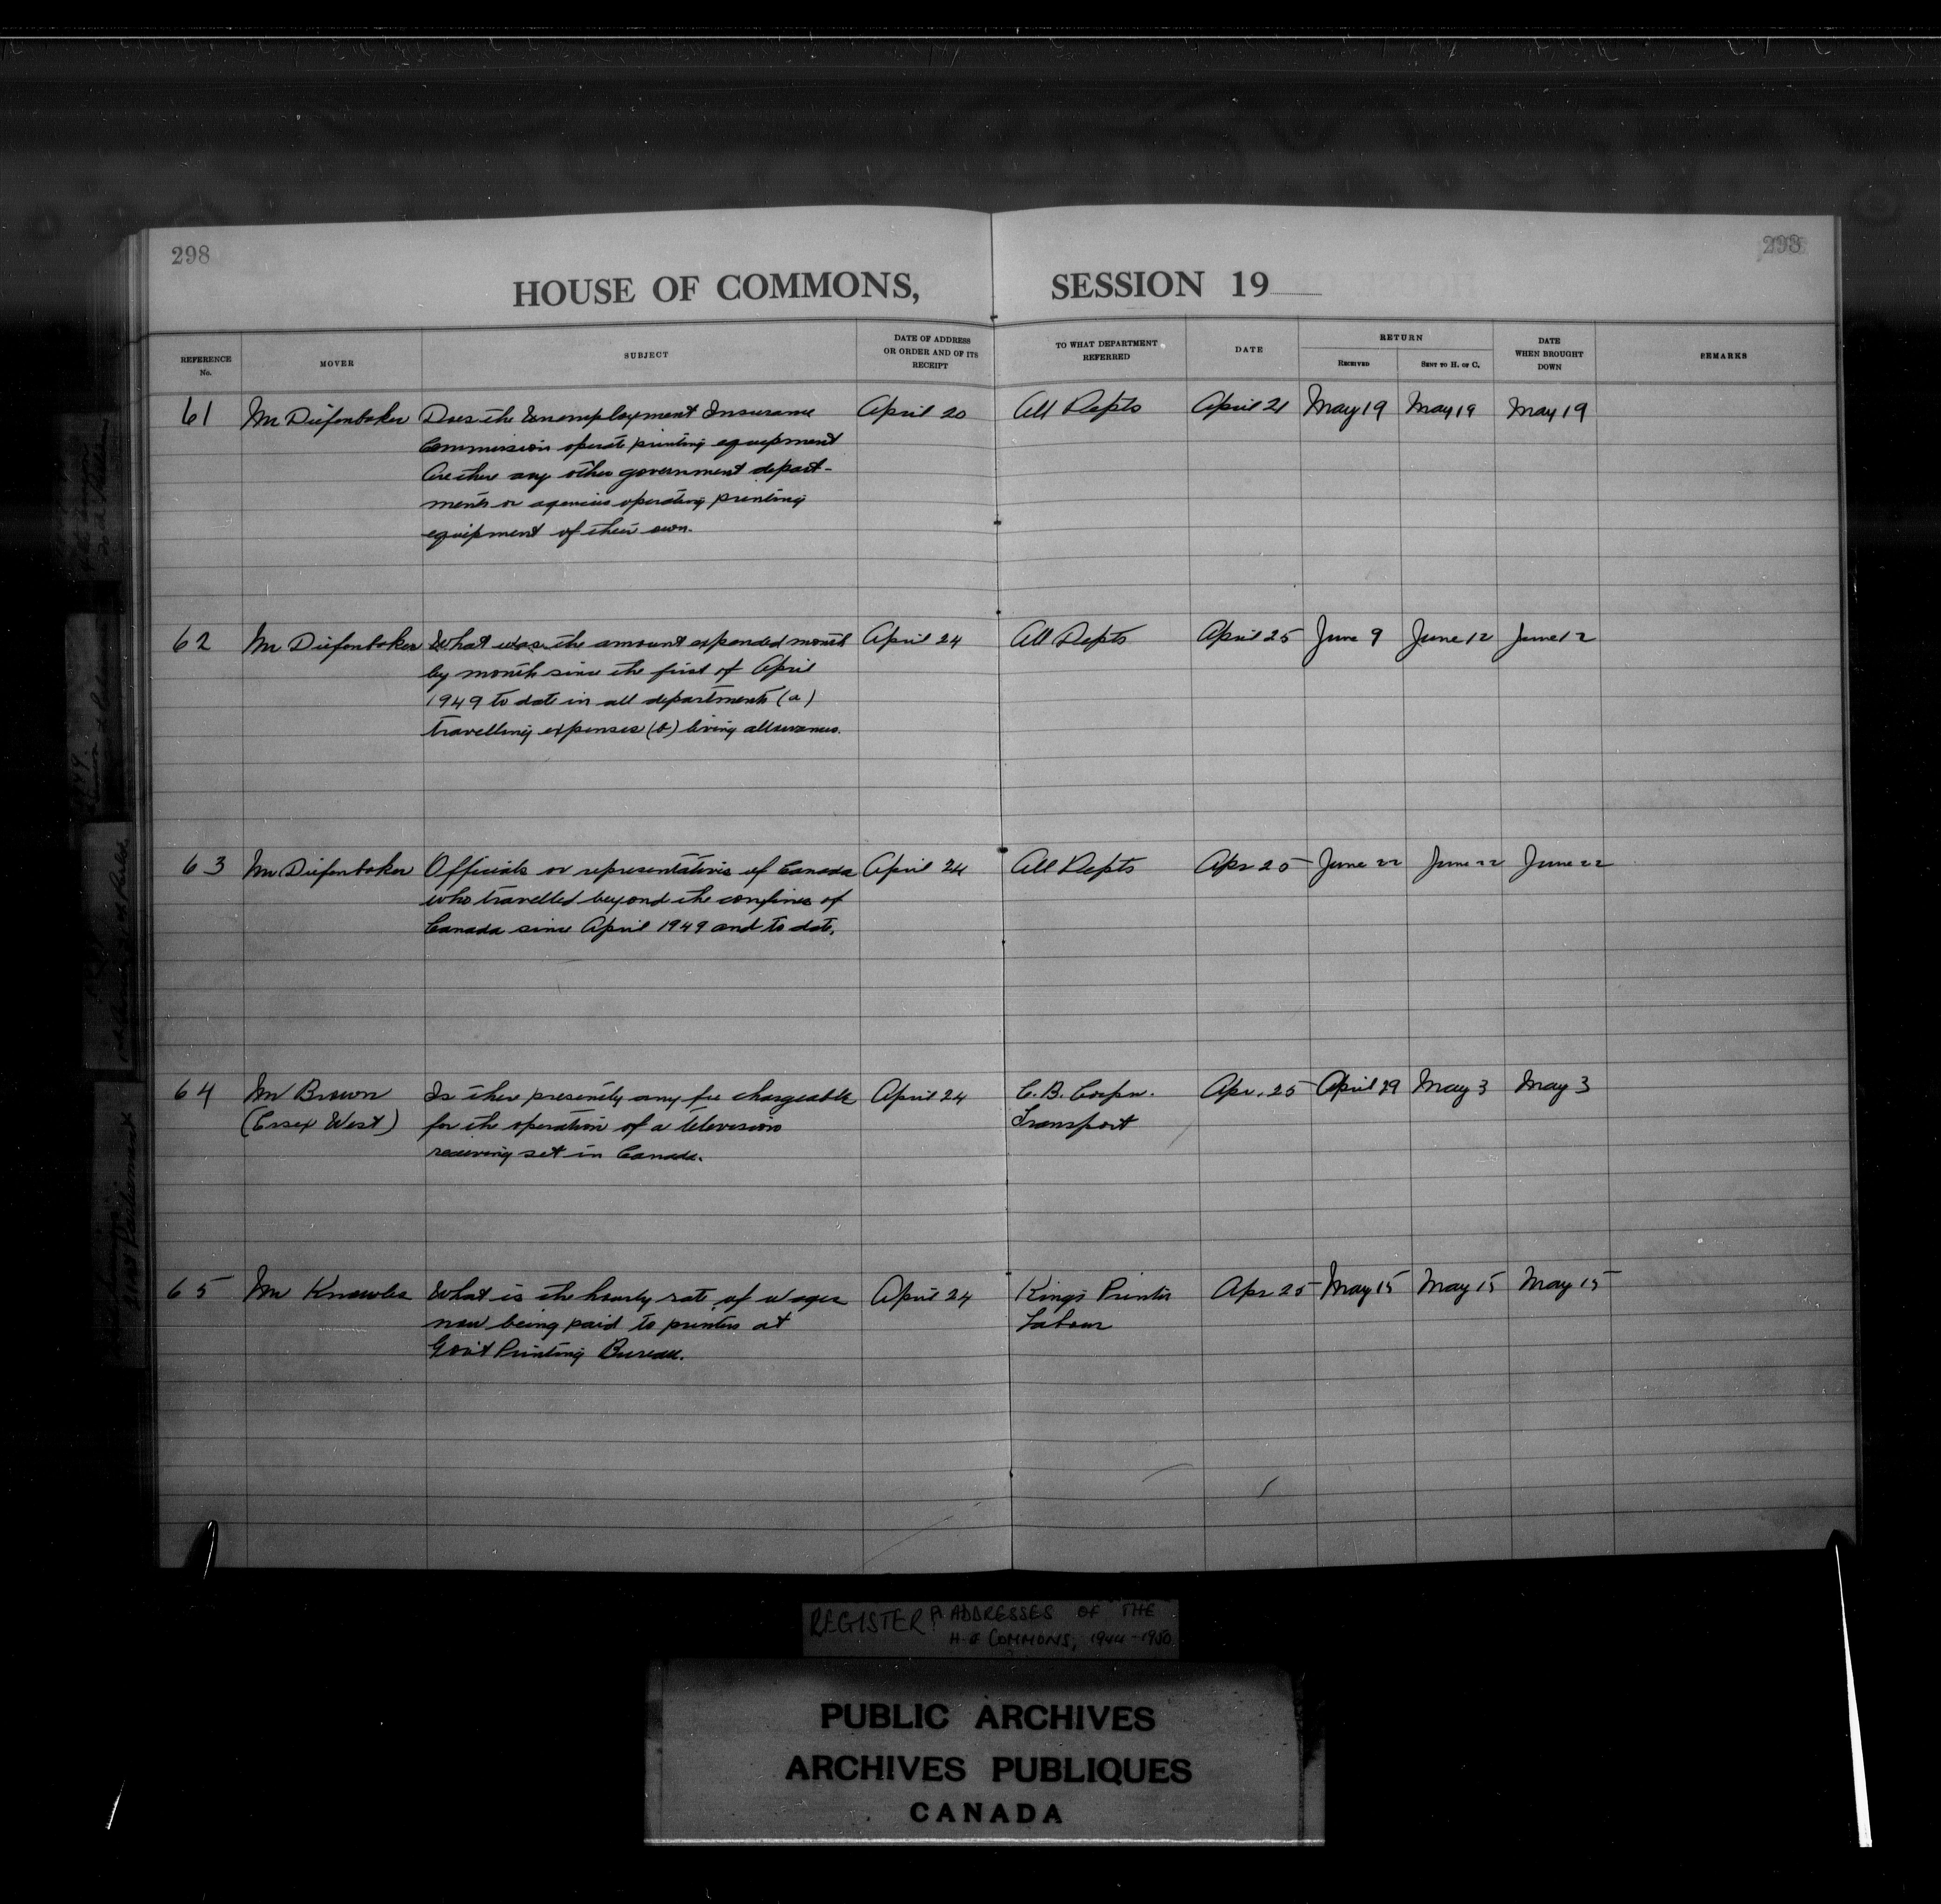 298
298
HOUSE OF COMMONS, SESSION 19
REFERENCE No.
MOVER
SUBJECT
DATE OF ADDRESS OR ORDER AND OF ITS RECEIPT
TO WHAT DEPARTMENT REFERRED
DATE
RETURN
RECEIVED
SENT TO H. OF C.
DATE WHEN BROUGHT DOWN
REMARKS
61 Mr Diefenbaker Does the Unemployment Insurance April 20 All Depts April 21 May 19 May 19 May 19
Commission operate printing equipment
Are there any other government depart-
ments or agencies operating printing
equipment of their own.
62 Mr Diefenbaker What was the amount expended month April 24 All Depts April 25 June 9 June 12 June 12
by month since the first of April
1949 to date in all departments (a)
travelling expenses (b) living allowances.
63 Mr Diefenbaker Officials or representatives of Canada April 24 All Depts Apr 25 June 22 June 22 June 22
who travelled beyond the confines of
Canada since April 1949 and to date.
64 Mr Brown Is there presently any fee chargeable April 24 C.B. Corpn. Apr. 25 April 29 May 3 May 3
(Essex West) for the operation of a television Transport
receiving set in Canada.
65 Mr Knowles What is the hourly rate of wages April 24 King's Printer Apr 25 May 15 May 15 May 15
now being paid to printers at Labour
Gov't Printing Bureau.
REGISTER ADDRESSES OF THE
H. of COMMONS, 1944-1950
PUBLIC ARCHIVES
ARCHIVES PUBLIQUES
CANADA